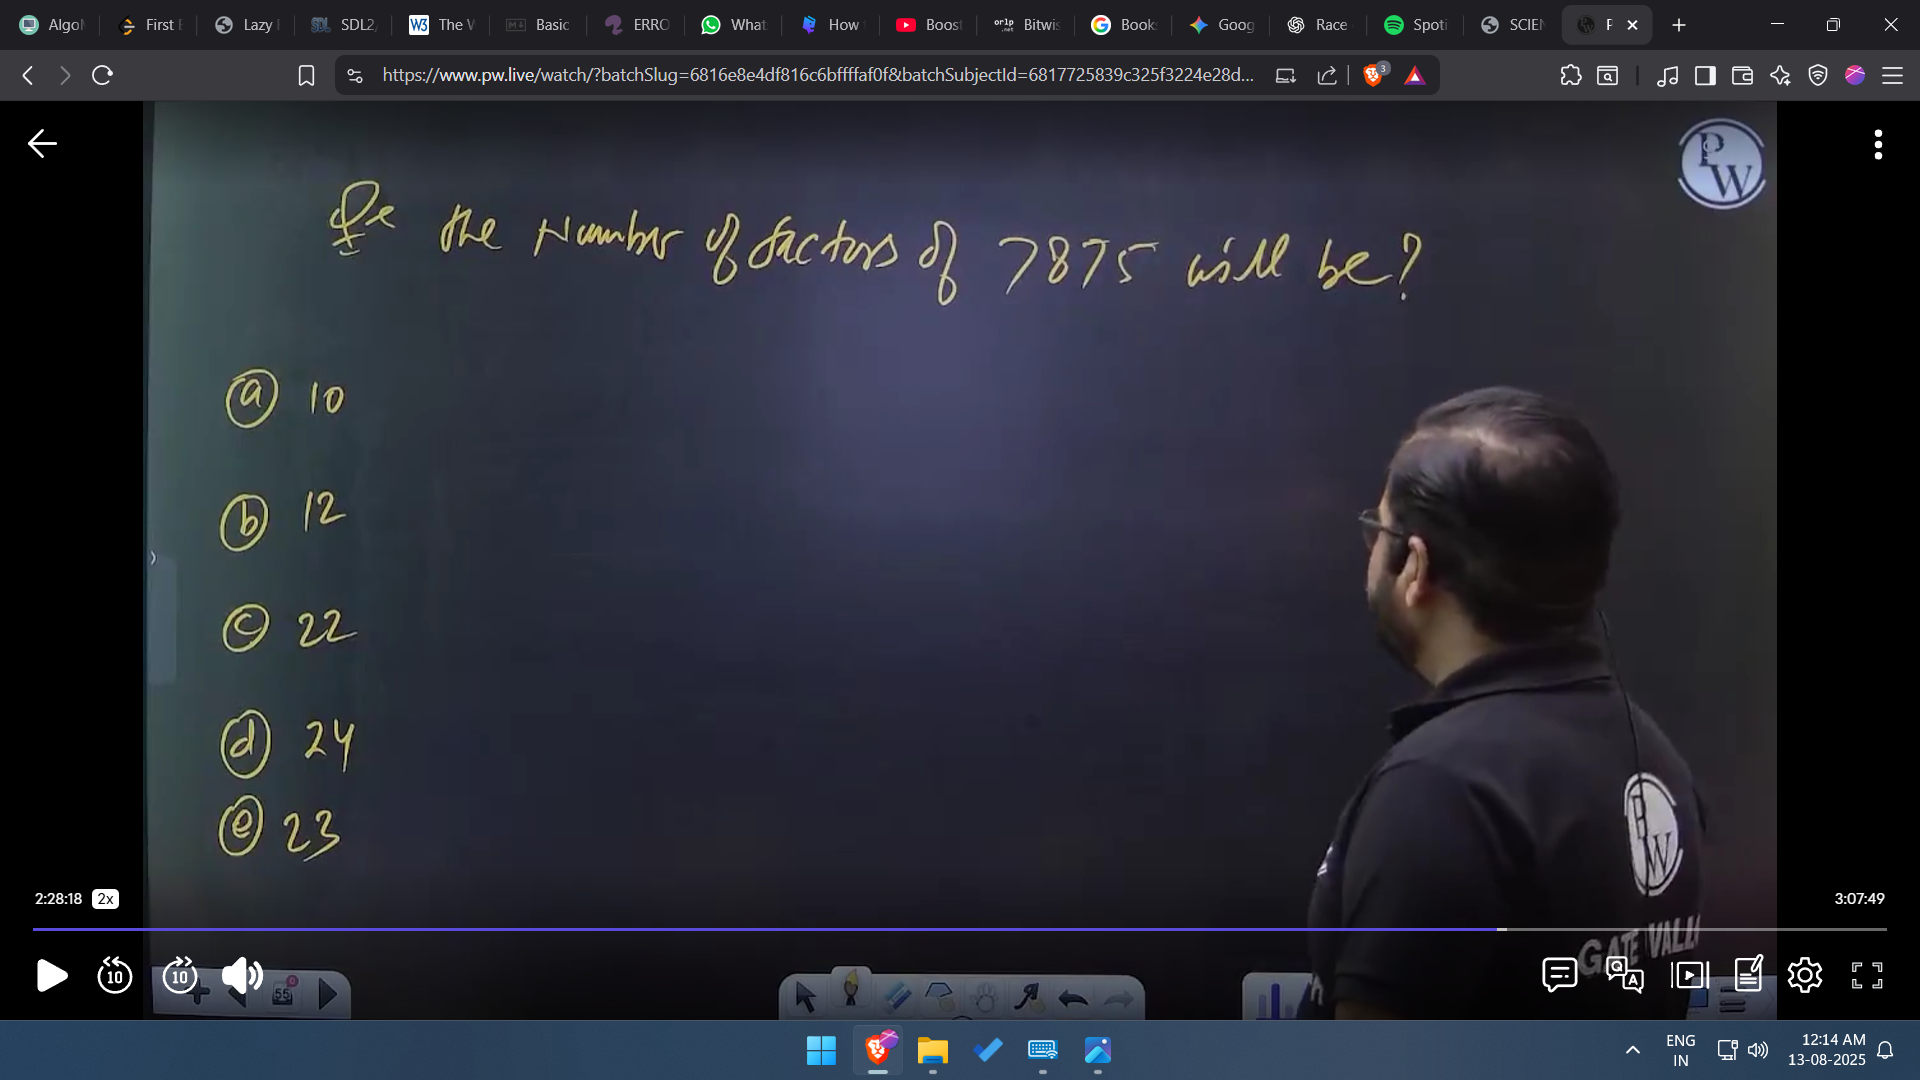 Algo
First E
Lazy
SDL2,
The W
Basic
ERRO
What
How
Boost
Bitwis
Book
Goog
Race
Spoti
SCIEN
P
https://www.pw.live/watch/?batchSlug=6816e8e4df816c6bffffaf0f&batchSubjectId=6817725839c325f3224e28d...
3
PW
Q: the Number of factors of 7875 will be?
a 10
b 12
c 22
d 24
e 23
PW
GATE WALL
2:28:18 2x
3:07:49
10 10
55
ENG
IN
12:14 AM
13-08-2025